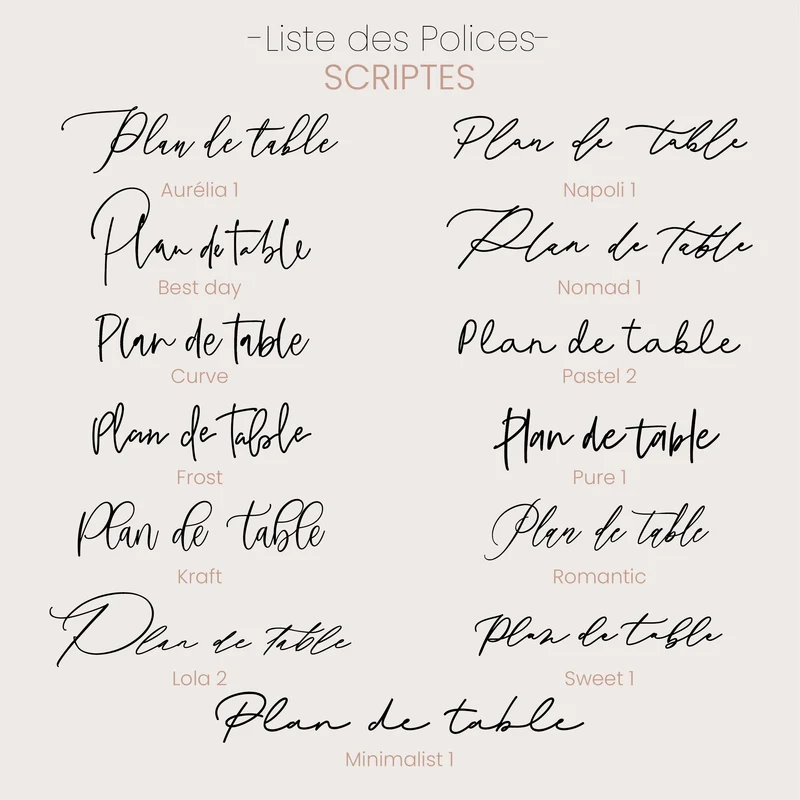 -Liste des Polices-
SCRIPTES
Plan de table
Aurélia 1
Plan de table
Napoli 1
Plan de table
Best day
Plan de table
Nomad 1
Plan de table
Curve
Plan de table
Pastel 2
Plan de table
Frost
Plan de table
Pure 1
Plan de table
Kraft
Plan de table
Romantic
Plan de table
Lola 2
Plan de table
Sweet 1
Plan de table
Minimalist 1